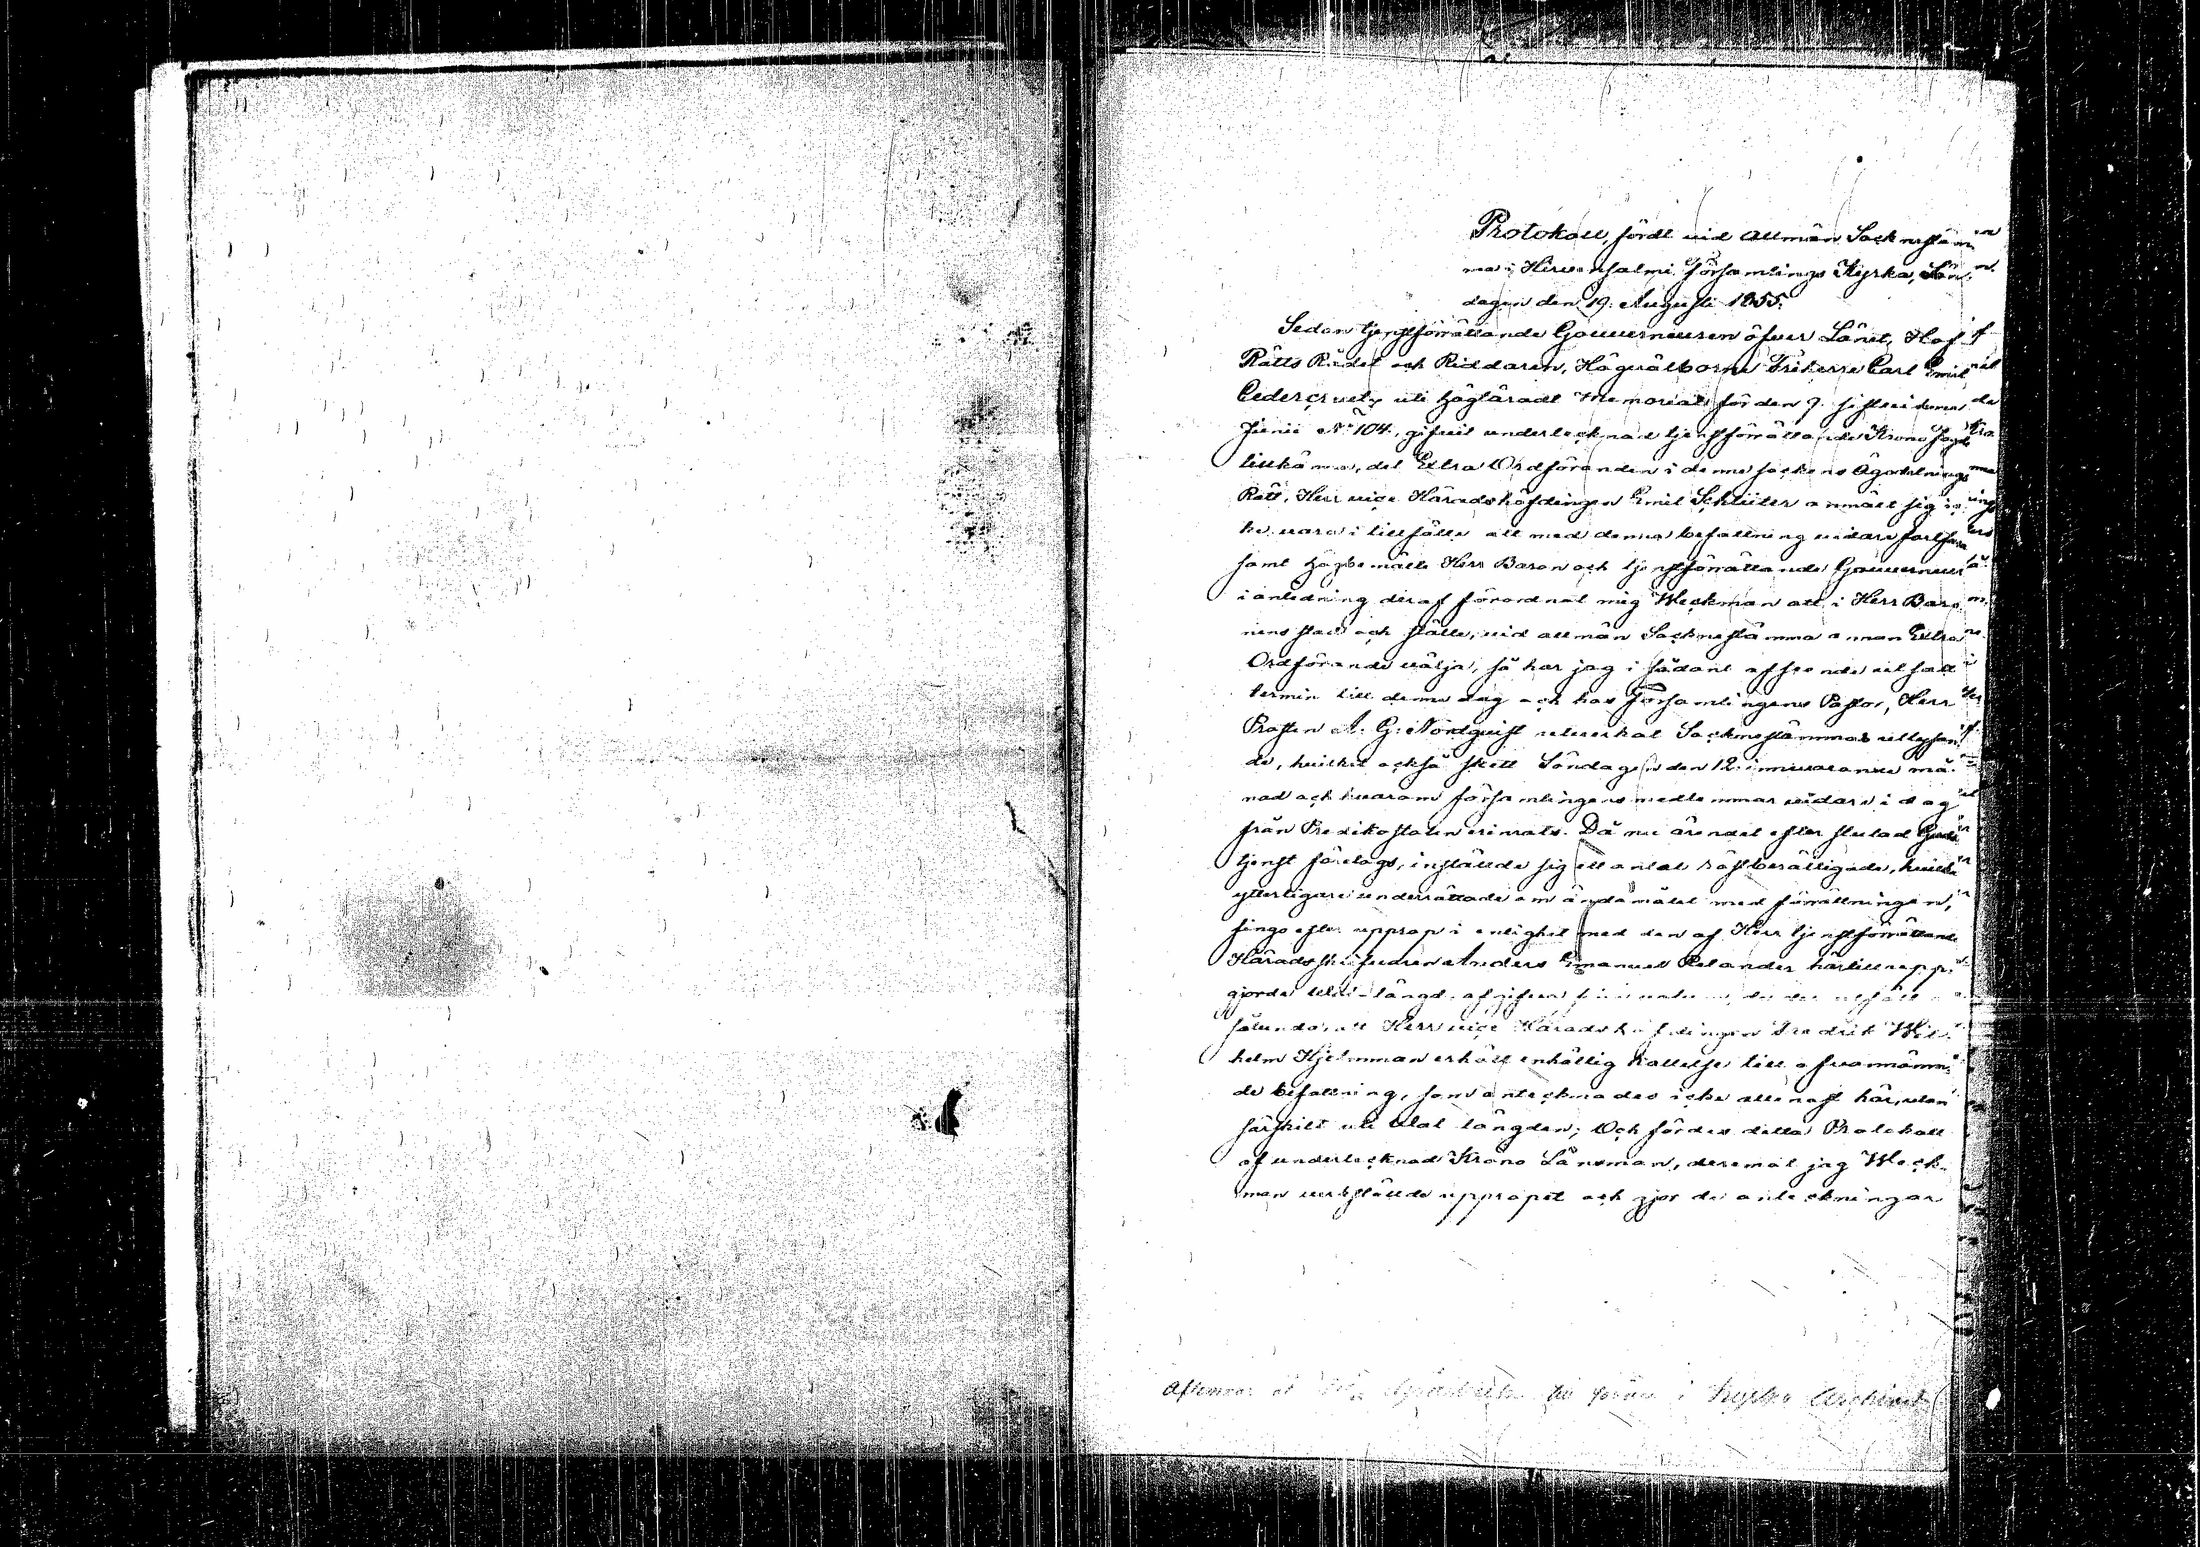 Protokoll, fördt vid Allmän Socknestäm
ma i Hirvensalmi Församlings Kyrka, Sön
dagen den 19. Augusti 1855.
Sedan tjenstförrättande Gouverneuren öfver Länet, Hof
Rätts Rådet och Riddaren, Högvälborne Friherre Carl Emil
Cedercreutz uti högläradt Memorial för den 9. sistvikne
Junii No 104, gifvit undertecknad tjenstförrättande Krono Fogde
tillkänna, det Extra Ordföranden i denne Sockens Ägodelnings
Rätt, Herr vice Häradshöfdingen Emil Schlüter anmält sig ic
ke vara i tillfälle att med denna befattning vidare fortfara
samt högbemälte Herr Baron och tjenstförrättande Gouverneur
i anledning deraf förordnat mig Weckman att i Herr Baro
nens stad och ställe, vid allmän Socknestämma annan Extra
Ordförande välja, så har jag i sådant afseende utsatt
termin till denne dag och har Församlingens Pastor, Herr
Prosten A. G. Nordqvist utverkat Socknestämmas utlysan
de, hvilket också skett Söndagen den 12. innevarande må
nad och hvarom församlingens medlemmar vidare i dag
från Predikostolen erinrats. Då nu ärendet efter slutad Guds
tjenst företogs, inställde sig ett antal röstberättigade, hvilka
ytterligare underrättade om ändamålet med förrättningen,
fingo efter upprop i enlighet med den af Herr tjenstförrättande
Häradsskrifvaren Anders Emanuel Relander härtill upp
gjorde längd afgifva
sålunda, att Herr vice Häradshöfdingen Fredrik Wil
helm Hjelmman erhållit enhällig kallelse till ofvannämn
de befattning, som antecknades icke allenast här, utan
särskilt uti Vallängden; Och fördes detta Protokoll
af undertecknad Krono Länsman, deremot jag Weck
man verkställde uppropet och gjorde anteckningar
i Kyrko Archivet